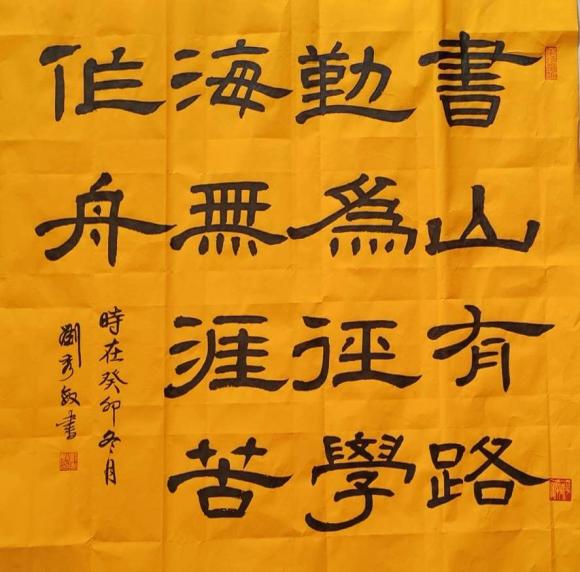 書山有路
勤為徑學
海無涯苦
作舟
時在癸卯冬月
劉秀敏書